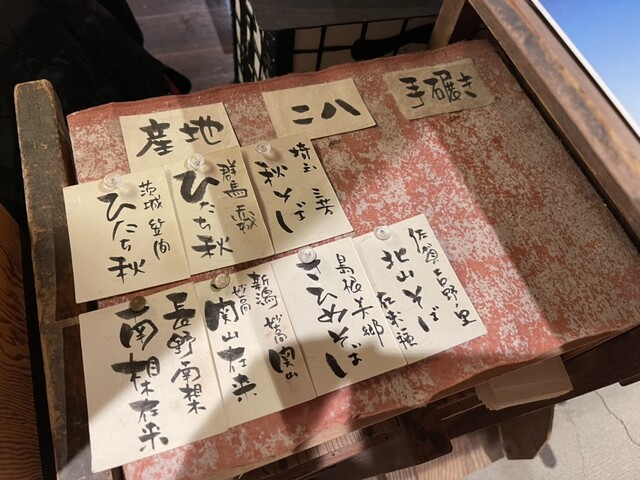 産地
二八
手碾き
茨城 笠間
ひたち秋
群馬 赤城
ひたち秋
埼玉 三芳
秋そば
長野南相木
南相木在来
新潟 妙高 関山
妙高
関山在来
島根美郷
さひめそば
佐賀吉野ヶ里
北山そば
在来種